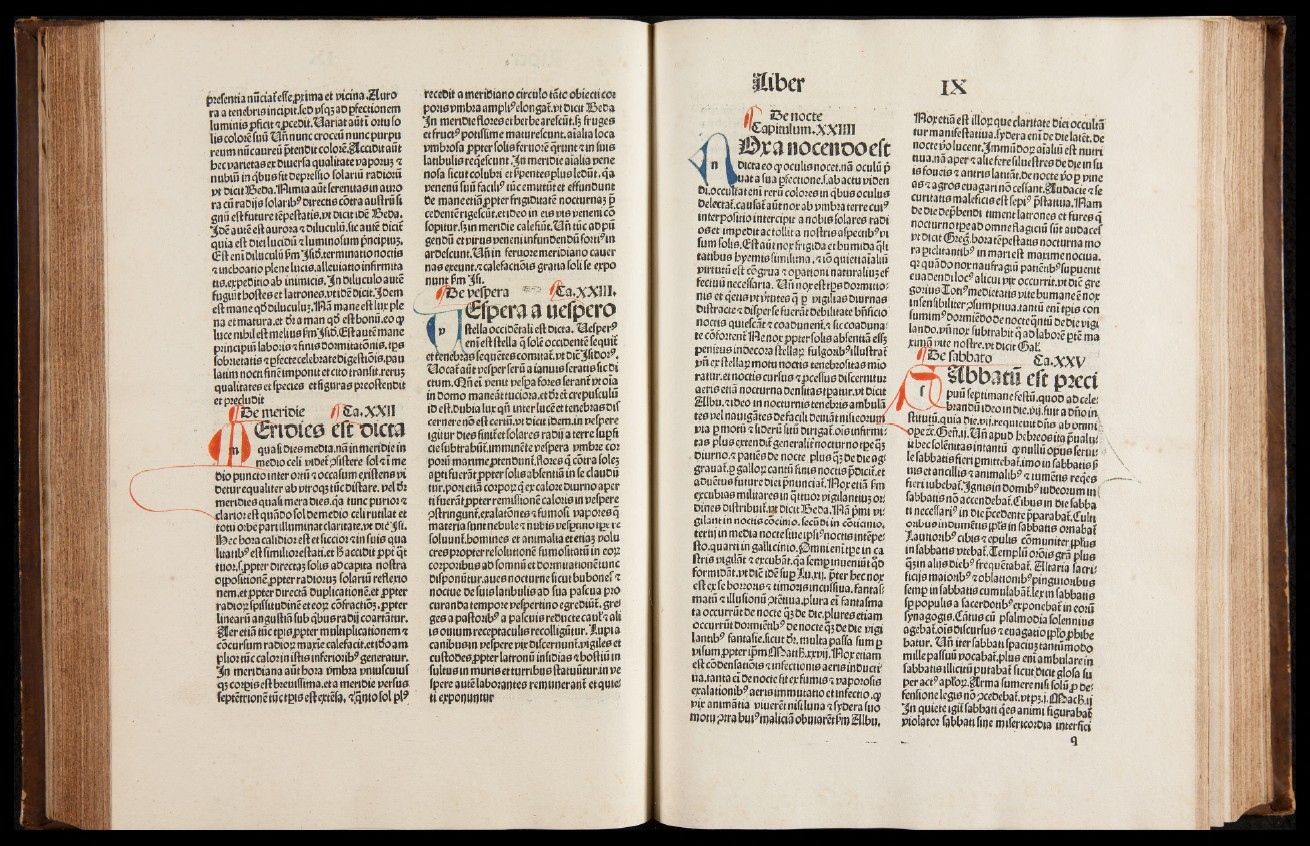 presentia nũciat esse,prima et vicina.Auro
ra a tenebris incipit.sed vsqꝫ ad pfectionem
luminis pficit ⁊ pcedit.Uariat aũt ĩ ortu so
lis colorẽ suũ Uñ nunc croceũ nunc purpu
reum nũc aureũ ptendit colorẽ.Accidit aũt
hec varietas ex diuersa qualitate vaporuꝫ ⁊
nubiũ in qbus fit depressio solariũ radiorũ
vt dicit Beda.Numia aũt serenitas in auro
ra cũ radijs solarib⁹ directis cõtra austrũ si
gnũ est future tẽpestatis.vt dicit idẽ Beda.
Idẽ autẽ est aurora ⁊ diluculũ,sic autẽ dicit
quia est diei lucidũ ⁊ luminosum pncipiuꝫ.
Est eni diluculũ fm Isid.terminatio noctis
⁊ inchoatio plene lucis.alleuiatio infirmita
tis.expeditio ab inimicis.In diluculo autẽ
fugiũt hostes et latrones.vt idẽ dicit.Idem
est mane qđ diluculuꝫ.Nã mane est lux ple
na et matura.et dr a man qđ est bonũ.eo ꝙ
luce nihil est melius fm Isid.Est autẽ mane
principiũ laboris ⁊ finis dormitatõnis.tps
sobrietatis ⁊ pfecte celebrate digestiõis.pau
latim nocti finẽ imponit et cito transit.reruꝫ
qualitates et species et figuras preostendit
et precludit
De meridie Ca.XXII
Eridies est dicta
quasi dies media.nã in meridie in
medio celi videt ꝯsistere sol ⁊ ĩ me
dio puncto inter ortũ ⁊ occasum existens vi
detur equaliter ab vtroqꝫ tũc distare. vel dr
meridies quasi mera dies.qa tunc purior ⁊
clarior est quãdo sol de medio celi rutilat et
totũ orbẽ pari illuminat claritate.vt dic̃ Isi.
Hec hora calidior est et siccior ⁊ in suis qua
litatib⁹ est similior estati.et ħ accidit ppi qt
tuor.s.ppter directaꝫ solis ad capita nostra
oppositionẽ.ppter radioruꝫ solariũ reflexio
nem.et ppter directã duplicationẽ.et ppter
radioꝝ spissitudinẽ et eoꝝ cõfractiõꝫ.ppter
linearũ angustiã sub qbus radij coartãtur.
Aer etiã tũc tpis ppter multiplicationem ⁊
cõcursum radioꝝ maxie calefacit.et iđo am
plior tũc calor in istis inferiorib⁹ generatur.
In meridiana aũt hora vmbra vniuscuius
qꝫ corpis est breuissima.et a meridie versus
septẽtrionẽ tũc tpis est extẽsa. ⁊ qnto sol pl⁹
recedit a meridiano circulo tãto obiecti cor
poris vmbra ampli⁹ elongat.vt dicit Beda
In meridie flores et herbe arescũt.sꝫ fruges
et fruct⁹ potissime maturescunt.aialia loca
vmbrosa ppter solis feruorẽ qrunt ⁊ in suis
latibulis reqescunt.In meridie aialia vene
nosa sicut colubri et serpentes plus ledũt.qa
venenũ suũ facili⁹ tũc emittũt et effundunt
de mane etiã ppter frigiditatẽ nocturnaꝫ p
cedentẽ rigescũt.et ideo in eis vis veneni cõ
sopitur.sꝫ in meridie calefiũt.Uñ tũc ad pũ
gendũ et virus veneni infundendũ forti⁹ in
ardescunt.Uñ in feruore meridiano cauer
nas exeunt.⁊ calefactiõis gratia soli se expo
nunt fm Isi.
De vespera Ca.XXIII.
Espera a uespero
stella occidẽtali est dicta. Uesper⁹
eni est stella q solẽ occidentẽ sequit
et tenebras sequẽtes comitat.vt dic̃ Isidor⁹.
Uocat aũt vesper serũ a ianuis seratis sic di
ctum.Qñ eni venit vespa fores serant vt oia
in domo maneãt tuciora.et dr et crepusculũ
id est.dubia lux qñ inter lucẽ et tenebras dis
cernere nõ est certũ.vt dicit idem.in vespere
igitur dies finit et solares radij a terre supfi
cie subtrahũt.imminẽte vespera vmbre cor
porũ maxime ptendunt.flores q cõtra soleꝫ
apti fuerãt ppter solis absentiã in se claudũ
tur.pori etiã corporꝝ q ex calore diurno aper
ti fuerãt ppter remissionẽ caloris in vespere
ꝯstringunt.exalatiões ⁊ fumosi vapores q
materia sunt nebule ⁊ nubis vesptino tpe re
soluunt.homines et animalia et etiaꝫ volu
cres propter resolutionẽ fumositatũ in eorꝝ
corporibus ad somnũ et dormitationẽ tunc
disponũtur.aues nocturne sicut bubones ⁊
noctue de suis latibulis ad sua pascua pro
curanda tempore vespertino egrediũt. gre
ges a pastorib⁹ a pascuis reducte caul⁹ ⁊ ali
is ouium receptaculis recolligũtur. Lupi a
canibus in vespere vix discernunt.vigiles et
custodes ppter latronũ insidias ⁊ hostiũ in
sultus in muris et turribus statuũtur.in ve
spere autẽ laborantes remunerant et quie
ti exponuntur
Liber IX
De nocte
Capitulum.XXIIII
Ox a nocendo est
dicta eo ꝙ oculis nocet.nã oculũ p
uat a sua pfectione.s.ab actu viden
di.occultat eni rerũ colores in qbus oculus
delectat.causat aũt nox ab vmbra terre cui⁹
interpositio intercipit a nobis solares radi
os et impedit ac tollit a nostris aspectib⁹ vi
sum solis.Est aũt nox frigida et humida qli
tatibus hyemis simillima.⁊ iõ quieti aialiũ
virtutũ est cõgrua ⁊ opationi naturaliuꝫ ef
fectiuũ necessaria. Uñ nox est tps dormitio
nis et qetis vt vtutes q p vigilias diurnas
distracte ⁊ disperse fuerãt debilitate bñficio
noctis quiescãt ⁊ coadunent.⁊ sic coaduna
te cõfortent Ne nox ppter solis absentiã esseꝫ
penitus indecora stellaꝝ fulgorib⁹ illustrat
vñ ex stellaꝝ motu noctis tenebrositas mio
ratur.et noctis cursus ⁊ pcessus discernitur
aeris etiã nocturna densitas tpatur.vt dicit
Albu.⁊ ideo in nocturnis tenebris ambulã
tes vel nauigãtes de facili deuiãt nisi eorum
via p motũ ⁊ siderũ situ dirigat.ois infirmi
tas plus extendit generaliř noctur no tpe qꝫ
diurno.⁊ patiẽs de nocte plus qꝫ de die ag
grauat.p galloꝝ cantũ finis noctis pdicit.et
aduẽtus future diei pnunciat.Nox etiã fm
excubias militares in qttuor vigilantiuꝫ or
dines distribuit.vt dicit Beda.Nã pmi vi
gilant in noctis cõcinio.secũdi in cõticinio.
tertij in media nocte siue ipsi⁹ noctis intẽpe
sto.quarti in gallicinio.Omni eni tpe in ca
stris vigilãt ⁊ excubãt.qa semp inueniũt qđ
formidãt.vt dic̃ idẽ sup Lu.xij. pter hec nox
est ex se horroris ⁊ timoris incussiua.fantas
matũ ⁊ illusionũ ꝯtẽtiua.plura eni fantasma
ta occurrũt de nocte qꝫ de die.plures etiam
occurrũt dormiẽtib⁹ de nocte qꝫ de die vigi
lantib⁹ fantasie.sicut dr.multa passa sum p
visum.ppter ipm Matth.xxvij.Nox etiam
est cõdensatiõis ⁊ infectionis aeris inducti
ua.tanta eni de nocte fit ex fumis ⁊ vaporosis
exalationib⁹ aeris immutatio et infectio.ꝙ
vix animãtia viuerẽt nisi luna ⁊ sydera suo
motu ꝯtra hui⁹ maliciã obuiarẽt fm Albu.
Nox etiã est illoꝝ que claritate diei occultã
tur manifestatiua.sydera eni de die latẽt.de
nocte vo lucent.Immũdoꝝ aialiũ est nutri
tiua.nã aper ⁊ alie fere siluestres de die in su
is foueis ⁊ antris latitãt.de nocte vo p vine
as ⁊ agros euagari nõ cessant.Audacie ⁊ se
curitatis maleficis est sepi⁹ pstatiua.Nam
de die dephendi timent latrones et fures q
nocturno tpe ad omne flagiciũ sũt audaces
vt dicit Greg.hora tẽpestatis nocturna mo
ra piclitantib⁹ in mari est maxime nociua.
qꝛ quãdo nox naufragiũ patiẽtib⁹ supuenit
euadendi loc⁹ alicui vix occurrit.vt dic̃ gre
gorius Toti⁹ medietatis vite humane ẽ nox
insensibiliter ꝯsumptiua.tantũ eni tpis con
sumim⁹ dormiẽdo de nocte qntũ de die vigi
lando.vñ nox subtrahit q ad laborẽ ptẽ ma
ximã vite nostre.vt dicit Gal.
De sabbato Ca.XXV
Abbatũ est preci
puũ septimane festũ.quod ad cele
brandũ ideo in die.vij.fuit a dño in
stitutũ.quia die.vij.requieuit dñs ab omni
ope ꝛc̃.Gen.ij.Uñ apud hebreos ita pualu
it hec solẽnitas intantũ ꝙ nullũ opus serui
le sabbatis fieri pmittebat.imo in sabbatis ħ
nis et ancillis ⁊ animalib⁹ ⁊ iumẽtis reqes
fieri iubebat.Ignis in domib⁹ iudeorum in
sabbatis nõ accendebat.Cibus in die sabba
ti necessari⁹ in die pcedente pparabat.Cultı
oribus indumẽtis ipsis in sabbatis ornabat
Lautiorib⁹ cibis ⁊ epulis cõmuniter ipsius
in sabbatis vtebat.Templũ orõis grã plus
qꝫ in alijs dieb⁹ frequẽtabat.Altaria sacri
ficijs maiorib⁹ ⁊ oblationib⁹ pinguioribus
semp in sabbatis cumulabãt.lex in sabbatis
sp populis a sacerdotib⁹ exponebat in eorũ
synagogis.Cãtus cũ psalmodia solennius
agebat.ois discursus ⁊ euagatio ipso phibe
batur. Uñ iter sabbati spacius tantũmodo
mille passuũ vocabat.plus eni ambulare in
sabbatis illicitũ putabat sicut dicit glosa su
per act⁹ aploꝝ.Arma sumere nisi solũ p de
fensione legis nõ ꝯcedebat.vt pꝫ.j.Mach.ij
In quiete igit sabbati qes animi figurabat
violator sabbati sine misericordia interfici
q